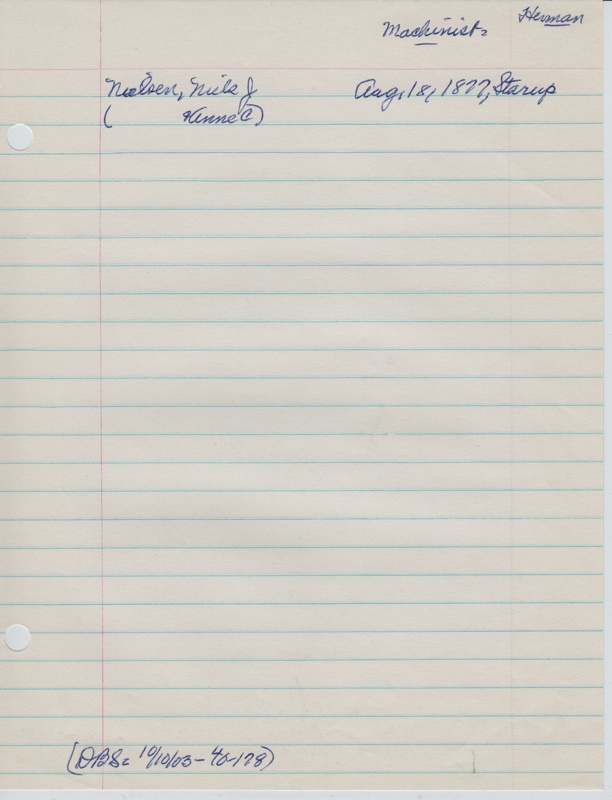 Herman
Machinist=
Nielsen, Niels J Aug. 18, 1877, Starup
( Hinne C)
(DBS= 10/10/03-40-178)